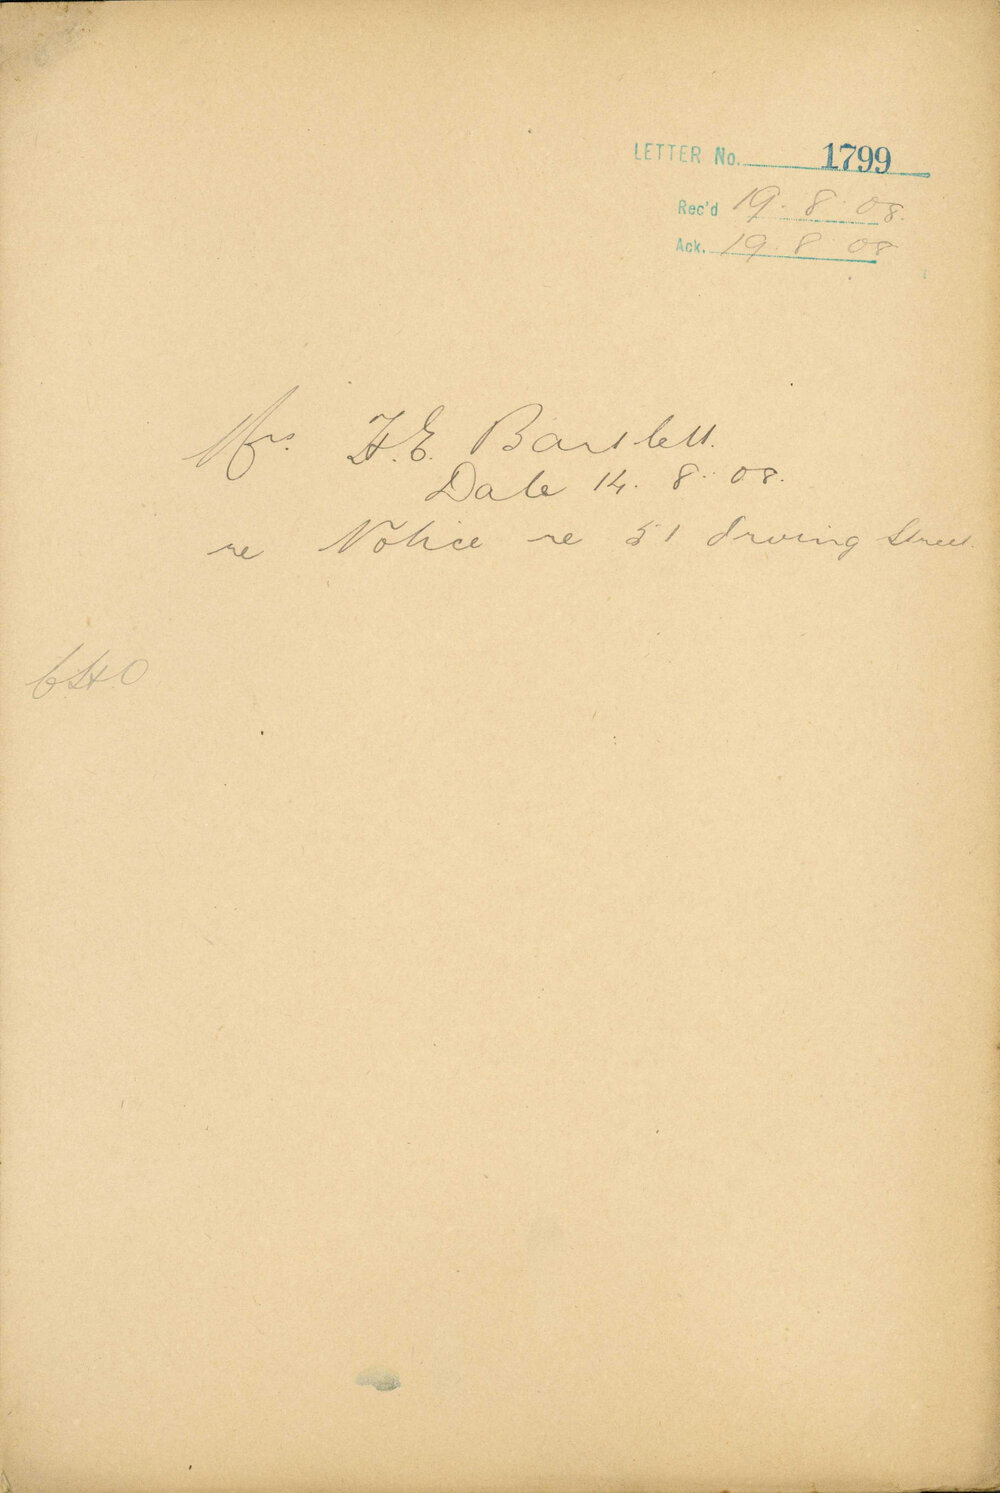 LETTER No. 1799
Rec'd 19. 8. 08.
Ack. 19. 8 08
Mrs. H. E. Bartlett.
Date 14. 8. 08.
re Notice re 51 Irving Street.
CHO